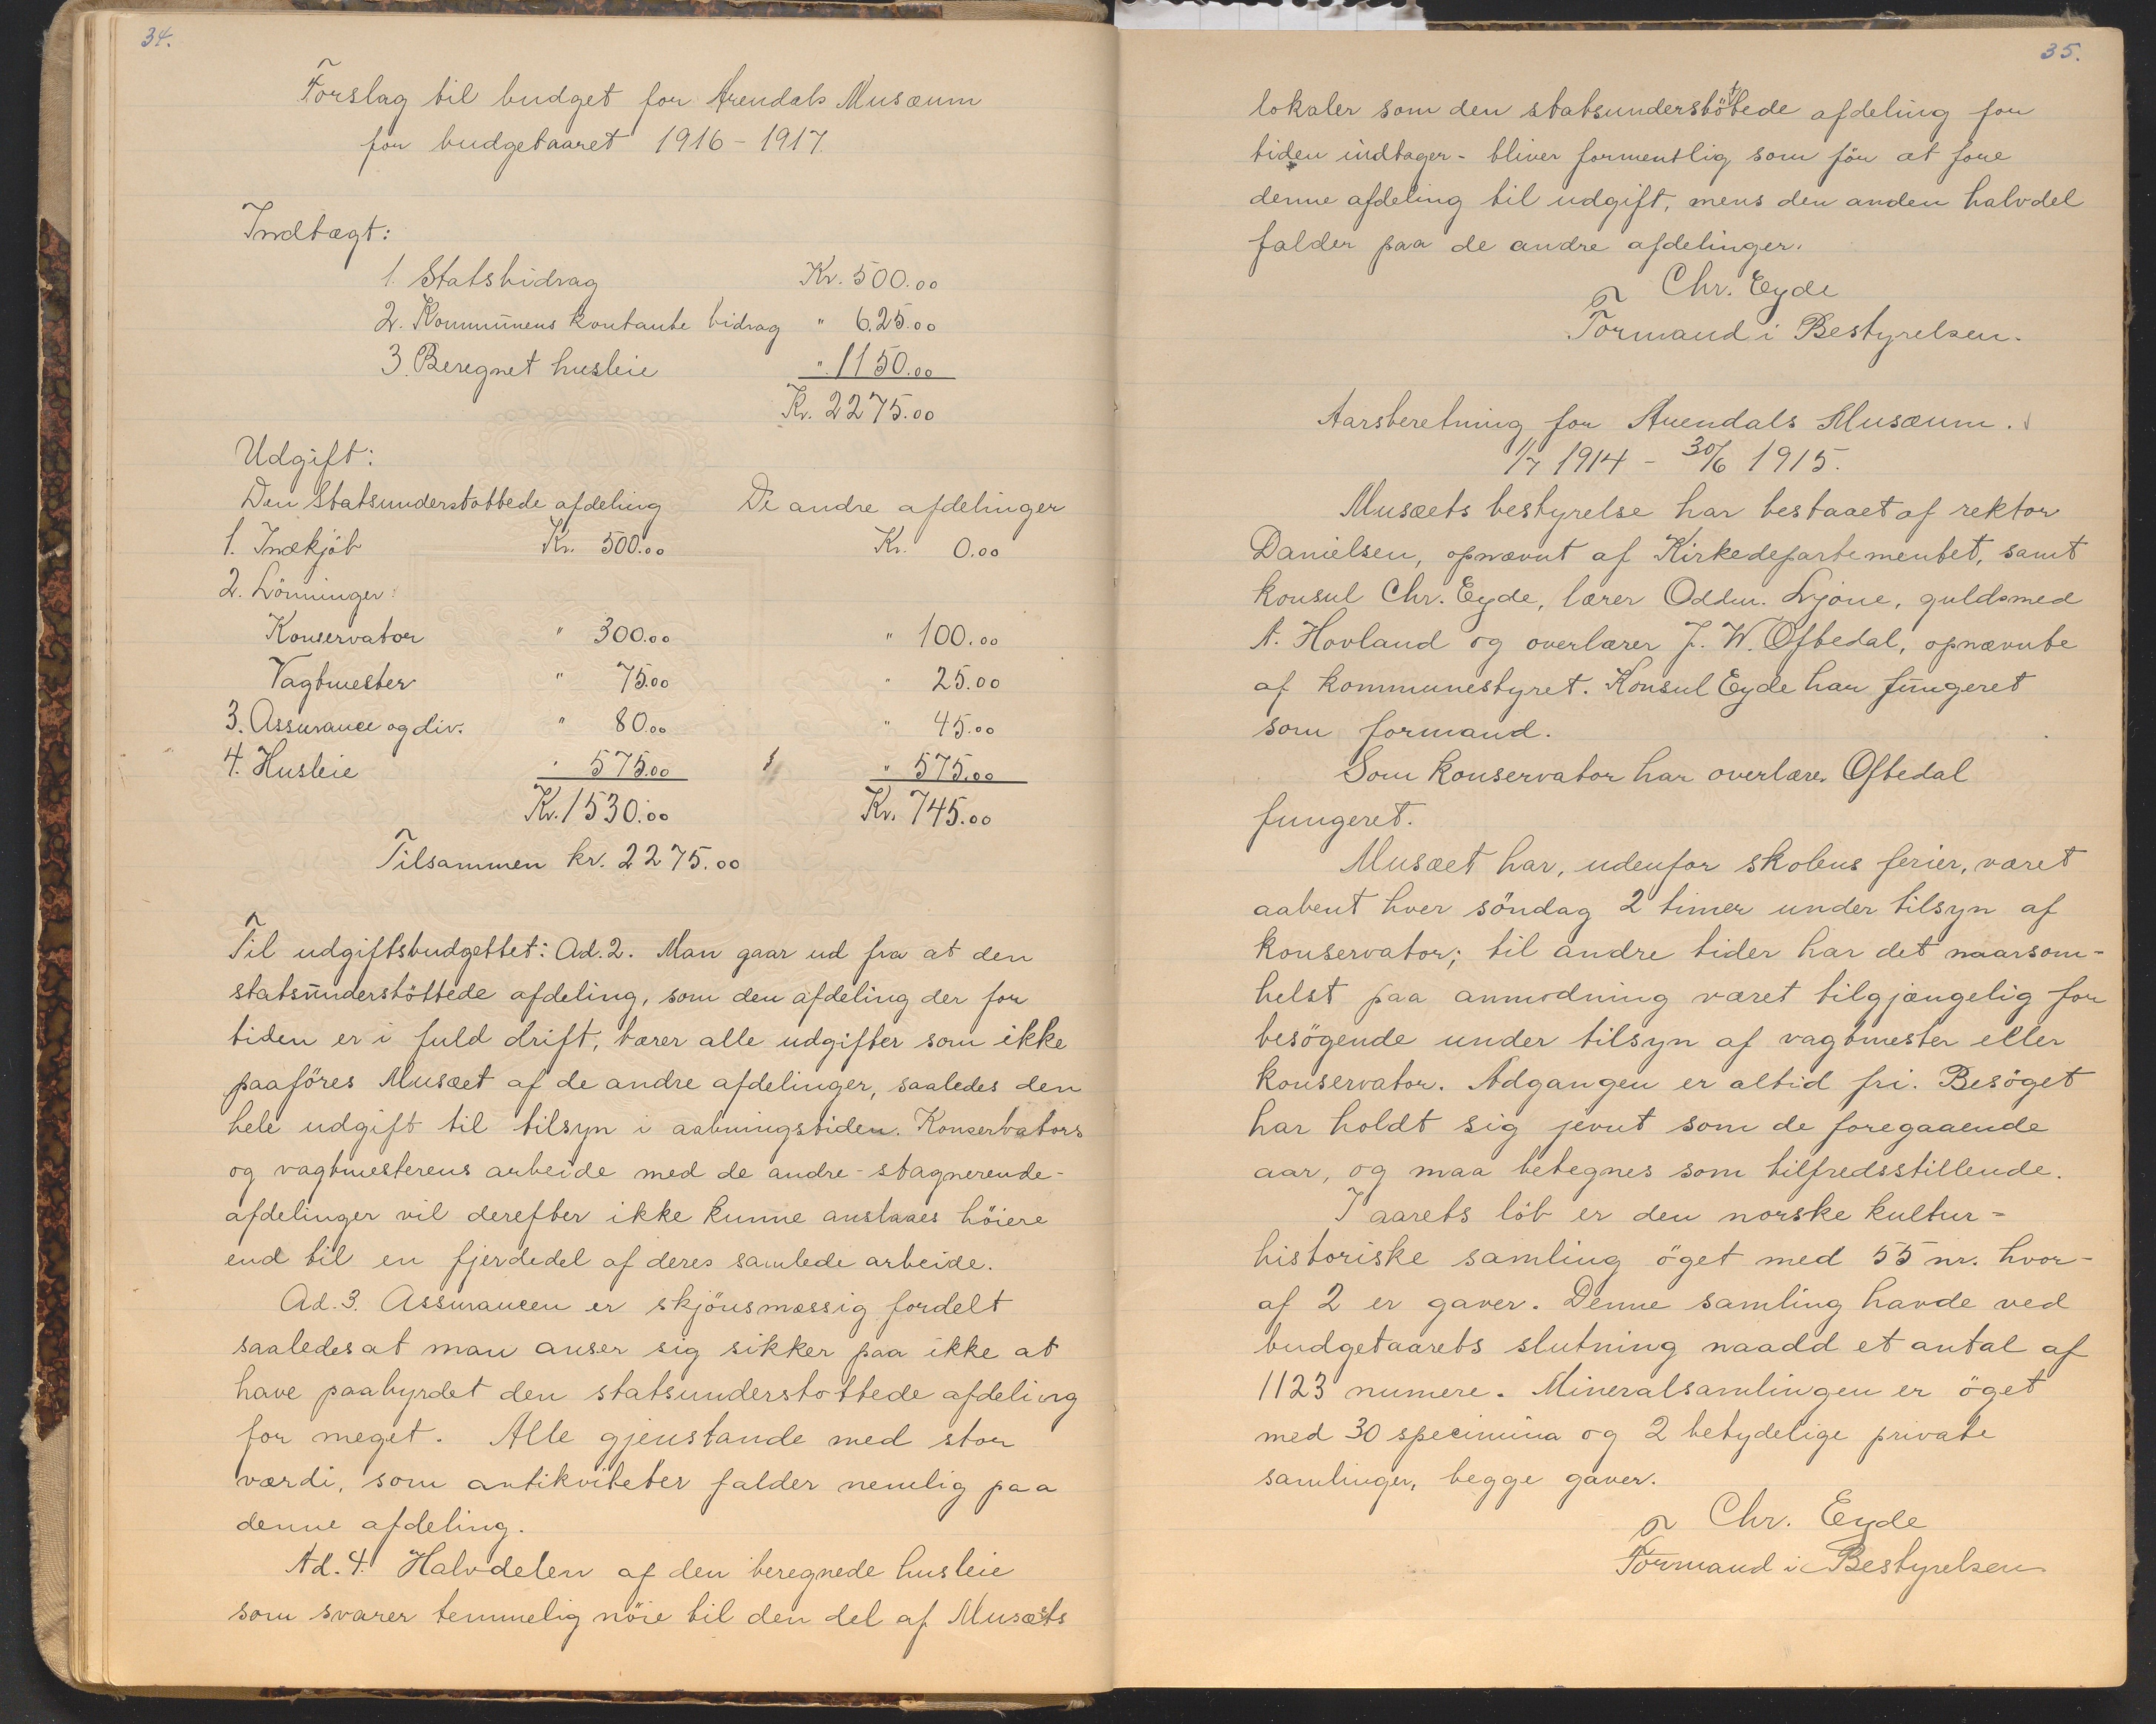 34.
Forslag til budget for Arendals Musæum
for budgetaaret 1916 - 1917.
Indtægt:
1. Statsbidrag Kr. 500.00
2. Kommunens kontante bidrag " 625.00
3. Beregnet husleie " 1150.00
Kr. 2275.00
Udgift:
Den Statsunderstøttede afdeling De andre afdelinger
1. Indkjöb Kr. 500.00 Kr. 0.00
2. Lönninger:
Konservator " 300.00 " 100.00
Vagtmester " 75.00 " 25.00
3. Assurance og div. " 80.00 " 45.00
4. Husleie " 575.00 " 575.00
Kr. 1530.00 Kr. 745.00
Tilsammen kr. 2275.00
Til udgiftsbudgettet: Ad. 2. Man gaar ud fra at den
statsunderstöttede afdeling, som den afdeling der for
tiden er i fuld drift, bærer alle udgifter som ikke
paaföres Musæet af de andre afdelinger, saaledes den
hele udgift til tilsyn i aabningstiden. Konservators
og vagtmesterens arbeide med de andre - stagnerende -
afdelinger vil derefter ikke kunne anslaaes höiere
end til en fjerdedel af deres samlede arbeide.
Ad. 3. Assurancen er skjönsmæssig fordelt
saaledes at man anser sig sikker paa ikke at
have paabyrdet den statsunderstottede afdeling
for meget. Alle gjenstande med stor
værdi, som antikviteter falder nemlig paa
denne afdeling.
Ad. 4. Halvdelen af den beregnede husleie
som svarer temmelig nöie til den del af Musæets
35.
lokaler som den statsunderstöttede afdeling for
tiden indtager - bliver formentlig som för at före
denne afdeling til udgift, mens den anden halvdel
falder paa de andre afdelinger.
Chr. Eyde
Formand i Bestyrelsen.
Aarsberetning for Arendals Musæum.
1/7 1914 - 30/6 1915.
Musæets bestyrelse har bestaaet af rektor
Danielsen, opnævnt af Kirkedepartementet, samt
konsul Chr. Eyde, lærer Oddm. Ljone, guldsmed
A. Hovland og overlærer J. W. Oftedal, opnævnte
af kommunestyret. Konsul Eyde har fungeret
som formand.
Som konservator har overlærer Oftedal
fungeret.
Musæet har, udenfor skolens ferier, været
aabent hver söndag 2 timer under tilsyn af
konservator; til andre tider har det naarsom-
helst paa anmodning været tilgjængelig for
besögende under tilsyn af vagtmester eller
konservator. Adgangen er altid fri. Besöget
har holdt sig jevnt som de foregaaende
aar, og maa betegnes som tilfredsstillende.
I aarets löb er den norske kultur-
historiske samling öget med 55 nr. hvor-
af 2 er gaver. Denne samling havde ved
budgetaarets slutning naadd et antal af
1123 numere. Mineralsamlingen er öget
med 30 specimina og 2 betydelige private
samlinger, begge gaver.
Chr. Eyde
Formand i Bestyrelsen